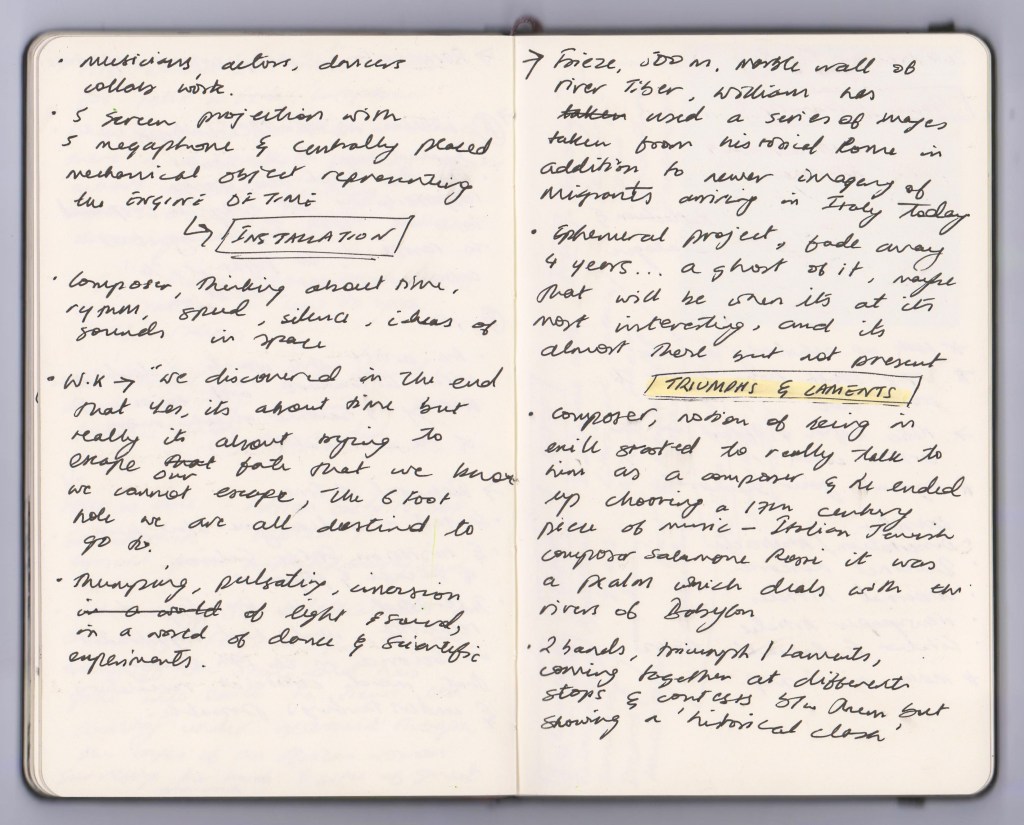 • musicians, actors, dancers
collab work.
• 5 screen projection with
5 megaphone & centrally placed
mechanical object representing
the ENGINE OF TIME
↳ INSTALLATION
• Composer, thinking about time,
rythm, speed, silence, ideas of
sounds in space
• W.K → "we discovered in the end
that yes, its about time but
really its about trying to
escape that fate that we know
our
we cannot escape, the 6 foot
hole we are all destind to
go to.
• Thumping, pulsating, imersion
in a world of light & sound,
in a world of dance & scientific
experiments.
→ Frieze, 500 m, marble wall of
river Tiber, William has
taken used a series of images
taken from historical Rome in
addition to newer imagery of
Migrants arriving in Italy today
• Ephemeral project, fade away
4 years... a ghost of it, maybe
that will be when its at its
most interesting, and its
almost there but not present
TRIUMPHS & LAMENTS
• composer, notion of being in
exile started to really talk to
him as a composer & he ended
up choosing a 17th century
piece of music – Italian Jewish
composer Salamone Rossi it was
a psalm which deals with the
rivers of Babylon
• 2 bands, triumph / Laments,
coming together at different
stops & contests b/w them but
showing a 'historical clash'